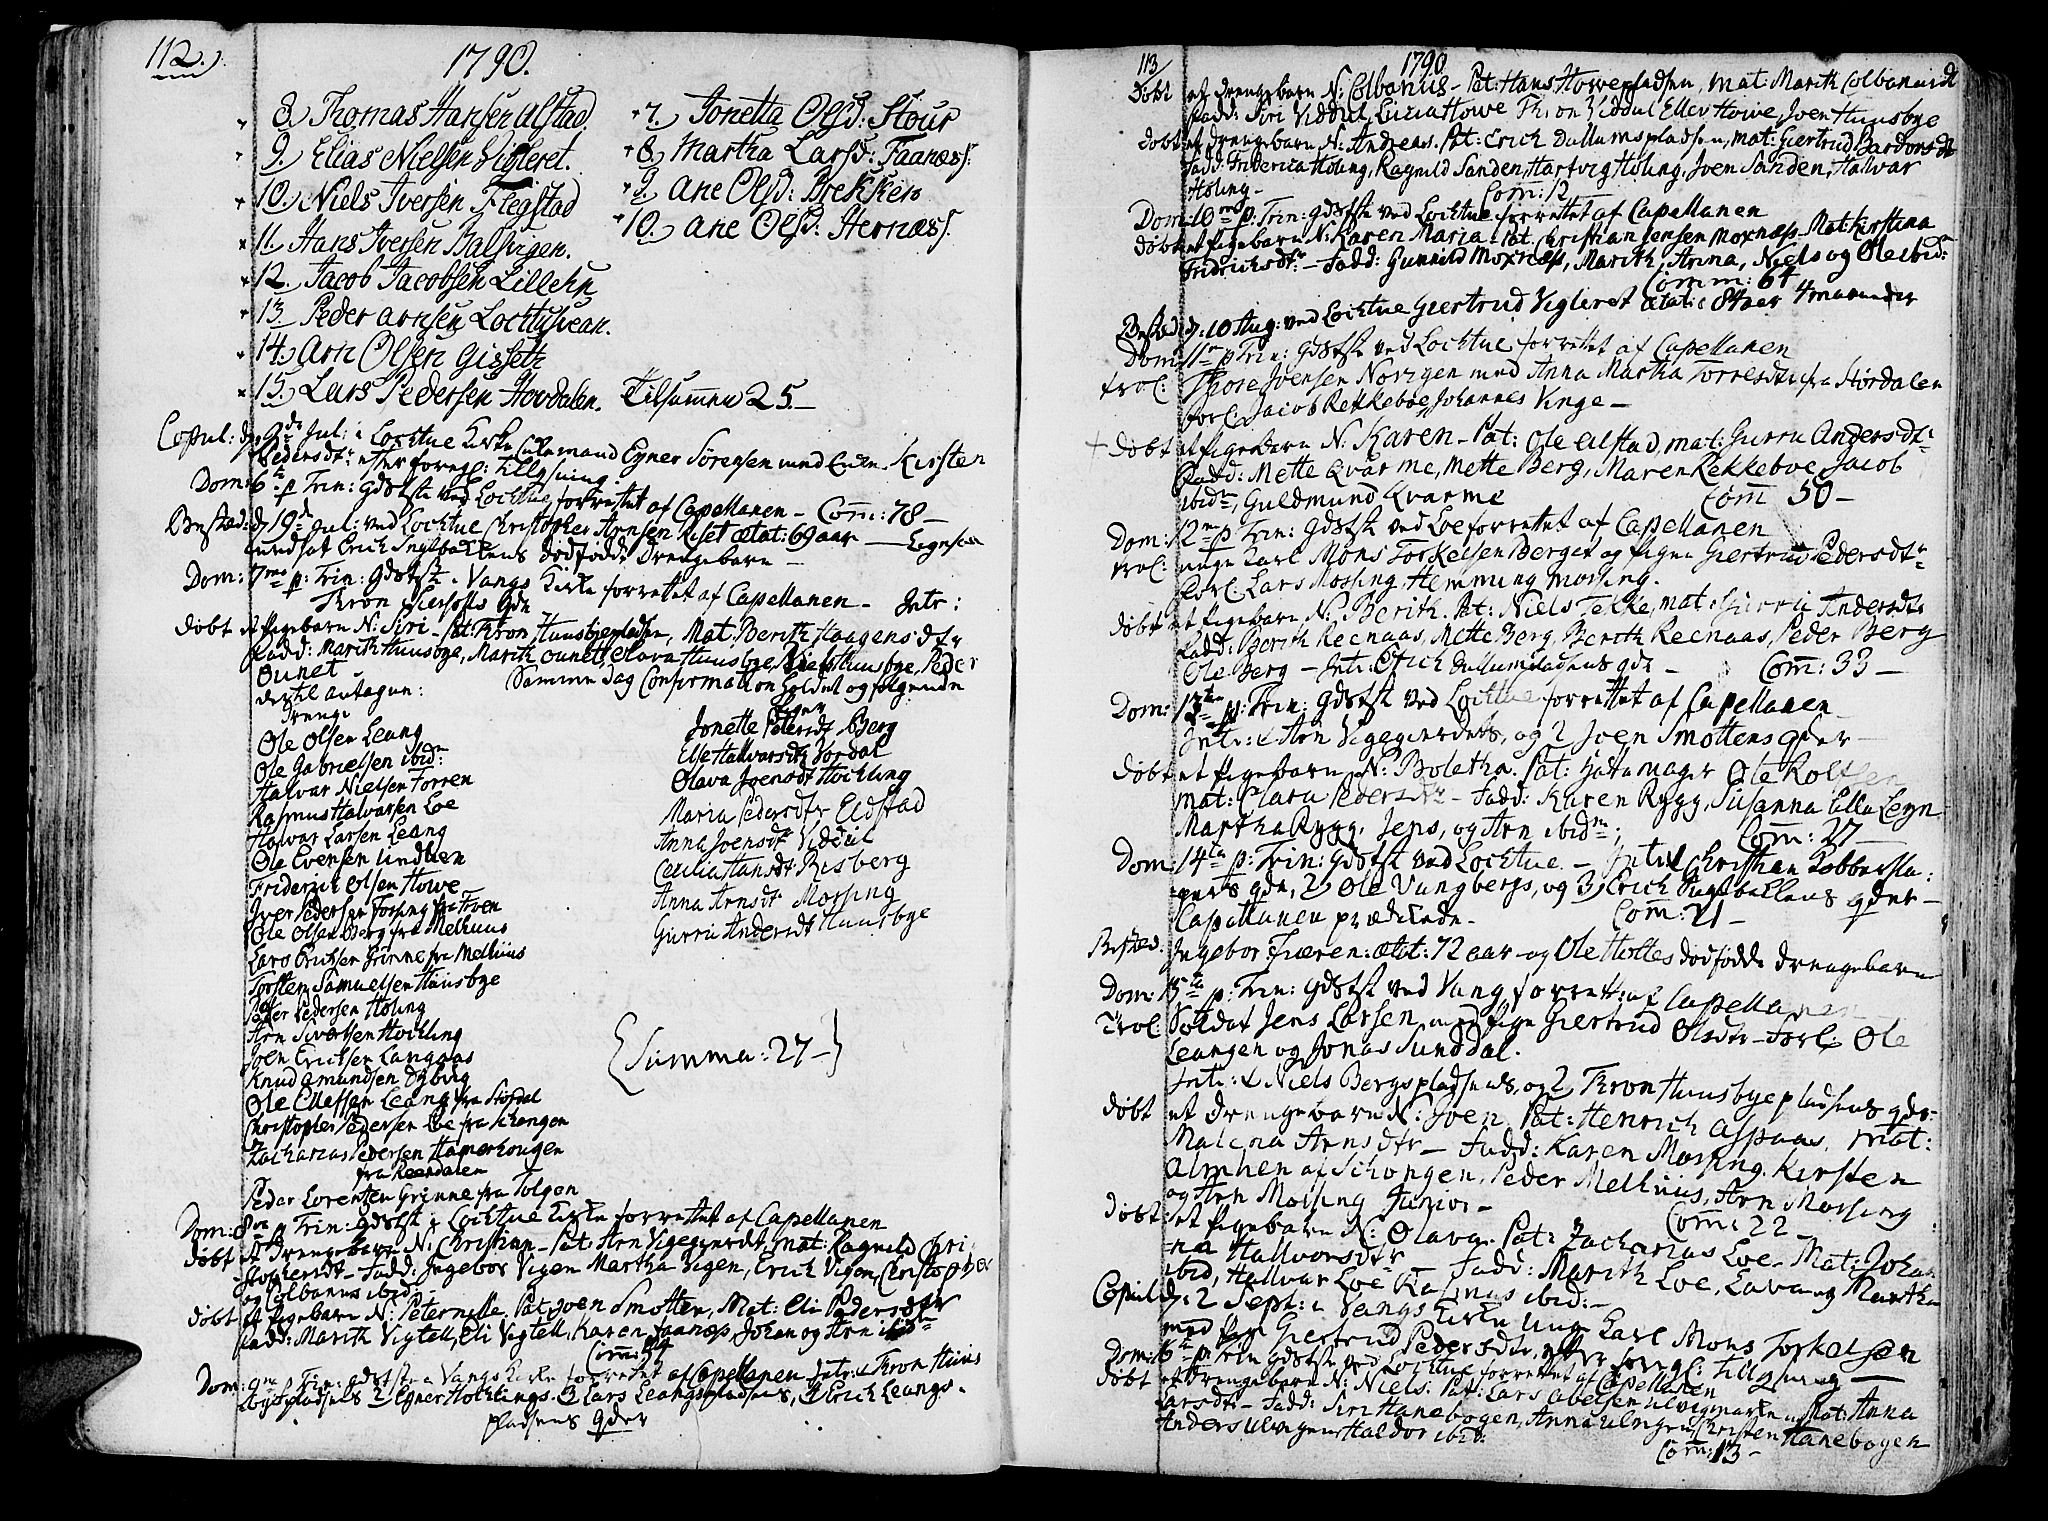 112.
1790.
8. Thomas Hansen Alstad.
9. Elias Nielsen Vigleret.
10. Niels Iversen Flegstad
11. Hans Iversen Balhrigen.
12. Jacob Jacobsen Lillehu
13. Peder Arnsen Lochtusvean.
14. Arn Olsen Gisseth
15. Lars Pedersen Hovdalen. Tilsammen 25.—
7. Jonetta Olsd: Stour
8. Martha Larsd: Faanæs.
9. Ane Olsd: Brekken
10. Ane Olsd: Hernæs.
Copul: d. 9de Jul: i Lochtue Kirke Enkemand Egner Sörensen med Enke Kirsten
Pedersdtr efter foregl: Tillysning
Dom: 6te p Trin: Gdstst ved Lochtue forrettet af Capellanen — Com: 78 —
Bested: d 19de Jul: ved Lochtue Christopher Arnsen Riset ætat: 69 aar —
Erich Inglbakkens dödfödde Drengebarn —
Dom: 7me p: Trin: Gdstst i Vangs Kirke forrettet af Capellanen — Intr:
Thron
Döbt et Pigebarn N: Siri — Pat: Thron Huusbyepladsen, Mat: Berith Haagensdtr
Fadd: Marith Huusbye, Marith Ounet, Olava Huusbye, Niels Huusbye, Peder
Ounet
Samme Dag Confirmation holdet og følgende
dertil antagen:
Drenge
Ole Olsen Leang
Ole Gabrielsen ibid:
Halvar Nielsen Torren
Rasmus Halvarsen Loe
Halvar Larsen Leang
Ole Evensen Lindtten
Friderich Olsen Howe
Iver Pedersen Fossing fra Tröen
Ole Olsen Berg fra Melhuus
Lars Erichsen Grinne fra Melhuus
Torsten Samuelsen Huusbye
Peder Pedersen Höling
Arn Siversen Hochling
Joen Ericksen Langaas
Knud Amundsen Dyborg
Ole Ellefsen Leang fra Stördal
Christopher Pedersen Loe fra Schongen
Zacharias Pedersen Hamerhougen
fra Reerdalen
Peder Lorentzen Grinne fra Tolgen
Piger
Jonette Petersdt Berg
Else Hallvarsdtr Vordal
Olava Joensdt Hochling
Maria Pedersdtr Eldstad
Anna Joensdt Viddal
Cecilia Hansdt Risberg
Anna Arnsdt Morsing
Gurru Andersdt Huusbye
{Summa: 27—}
Dom: 8va p Trin: Gdstst i Lochtue Kirke forrettet af Capellanen
Döbt et Drengebarn N: Christian — Pat: Arn Vigegierdet, Mat: Ragnild Chri-
stophersdt — Fadd: Ingebor Vigen Martha Vigen, Erich Vigen, Christopher
og Colbanus ibid:
Döbt et Pigebarn N: Peternille, Pat: Joen Smotten, Mat: Eli Pedersdtr
Fadd: Marith Vigtell, Eli Vigtell, Karen Faanæs, Johan og Arn ibidm
Com: 54
Dom: 9na p Trin: Gdstst i Vangs Kirke forrettet af Capellanen Intr: 1 Thron Huus
byepladsens 2 Egner Hochlings. 3 Lars Leangspladsens, 4 Erich Leangs-
pladsens Qder
113
1790
Döbt et Drengebarn N: Colbanus — Pat: Hans Howepladsen, Mat: Marith Colbanusdt
Fadd: Siri Viddul, Lucia Howe Thron Viddul Ellev Howe, Joen Huusbye
Döbt et Drengebarn N: Andreas. Pat: Erich Dullumspladsen, mat: Giertrud Bardonsdt
Fadd: Friderica Höling, Ragnild Sanden, Hartvig Höling, Joen Sanden, Halvar
Höling — Com: 12 —
Dom: 10me p. Trin: Gdstst ved Lochtue forrettet af Capellanen
Döbt et Pigebarn N: Karen Maria — Pat: Christian Jensen Moxnæs — Mat: Kirstina
Fridrichsdtr — Fadd: Gunnild Moxnæs, Marith, Anna, Niels og Ole ibid:
Comm: 64
Bested: d. 10 Aug: ved Lochtue Giertrud Vigleret ætati: 84 aar 4 maaneder
Dom: 11e p Trin: Gdstst ved Lochtue forrettet af Capellanen
Trol: Thore Joensen Norigen med Anna Martha Torresdtr fra Stördalen
Forl: Jacob Rekkeboe, Johannes Ynge —
+ Döbt et Pigebarn N: Karen — Pat: Ole Alstad, mat: Gurru Andersdtr
Fadd: Mette Qvarme, Mette Berg, Maren Rekkeboe, Jacob
ibidm, Guldmund Kvarme Com 50 —
Dom: 12me p Trin: Gdstst ved Loe forrettet af Capellanen
Trol: unge Karl Mons Torkelsen Berget og Pigen Giertrud Pedersdtr
Forl: Lars Mossing, Hemming Morsing.
Döbt et Pigebarn N: Berith. Pat: Niels Tekke, mat: Gurru Andersdtr
Fadd: Berith Reenaas, Mette Berg, Berith Reenaas, Peder Berg
Ole Berg — Intr: Erich Dullumsladsens Qde — Com: 33 —
Dom: 13te p: Trin: Gdstst ved Lochtue forrettet af Capellanen —
Intr: 1 Arn Vigegierdets, og 2 Joen Smottens Qder —
Döbt et Pigebarn N: Boletha. Pat: Hattemager Ole Rolfsen
Mat: Clara Pedersdtr — Fadd: Karen Rygg, Susanna Lilleløgn
Martha Rygg, Jens, og Arn ibidm: Com: 27 —
Dom: 14te p: Trin: Gdstst ved Lochtue — Intr: 1 Christian Kobbersla:
gers Qde, 2 Ole Vangbergs, og 3 Erich Inglbakkens Qder —
Capellanen prædikede — Com: 21 —
Bested: Ingebor Fiæren: ætat: 72 aar og Ole Holtes dödfödde Drengebarn
Dom: 15te p: Trin: Gdstst ved Vang forrett: af Capellanen
Trol: Soldat Jens Larsen, med Pige Giertrud Olsdtr — Forl: Ole
Leangen og Jonas Sunddal.
Intr: 1 Niels Bergspladsens, og 2 Thron Huusbyepladsens Qder —
Döbt et Drengebarn N: Joen, Pat: Henrich Aspaas, Mat:
Malena Arnsdtr — Fadd: Karen Morsing, Kirsten
Almhen af Schongen, Peder Melhuus, Arn Morsing
og Arn Morsing Junior — Com: 22 —
Döbt: et Pigebarn N: Olava. Pat: Zacharias Loe — Mat: Johan-
na Hallvorsdtr Fadd: Marith Loe, Lava og Martha
ibid, Hallvar Loe, Rasmus ibid: —
Copul: d: 2 Sept: i Vangs Kirke unge Karl Mons Torkelsen
med Pige Giertrud Pedersdtr, efter foregl: Tillysning —
Dom: 16te p Trin Gdstst ved Lochtue forrettet af Capellanen
Döbt et Drengebarn N: Niels. Pat: Lars Abelsen Ulvigmarken, Mat: Anna
Larsdtr — Fadd: Siri Hanebogen, Anna Ulvigen, Christen Hanebogen
Anders Ulvigen Haldor ibid: Com: 13 —